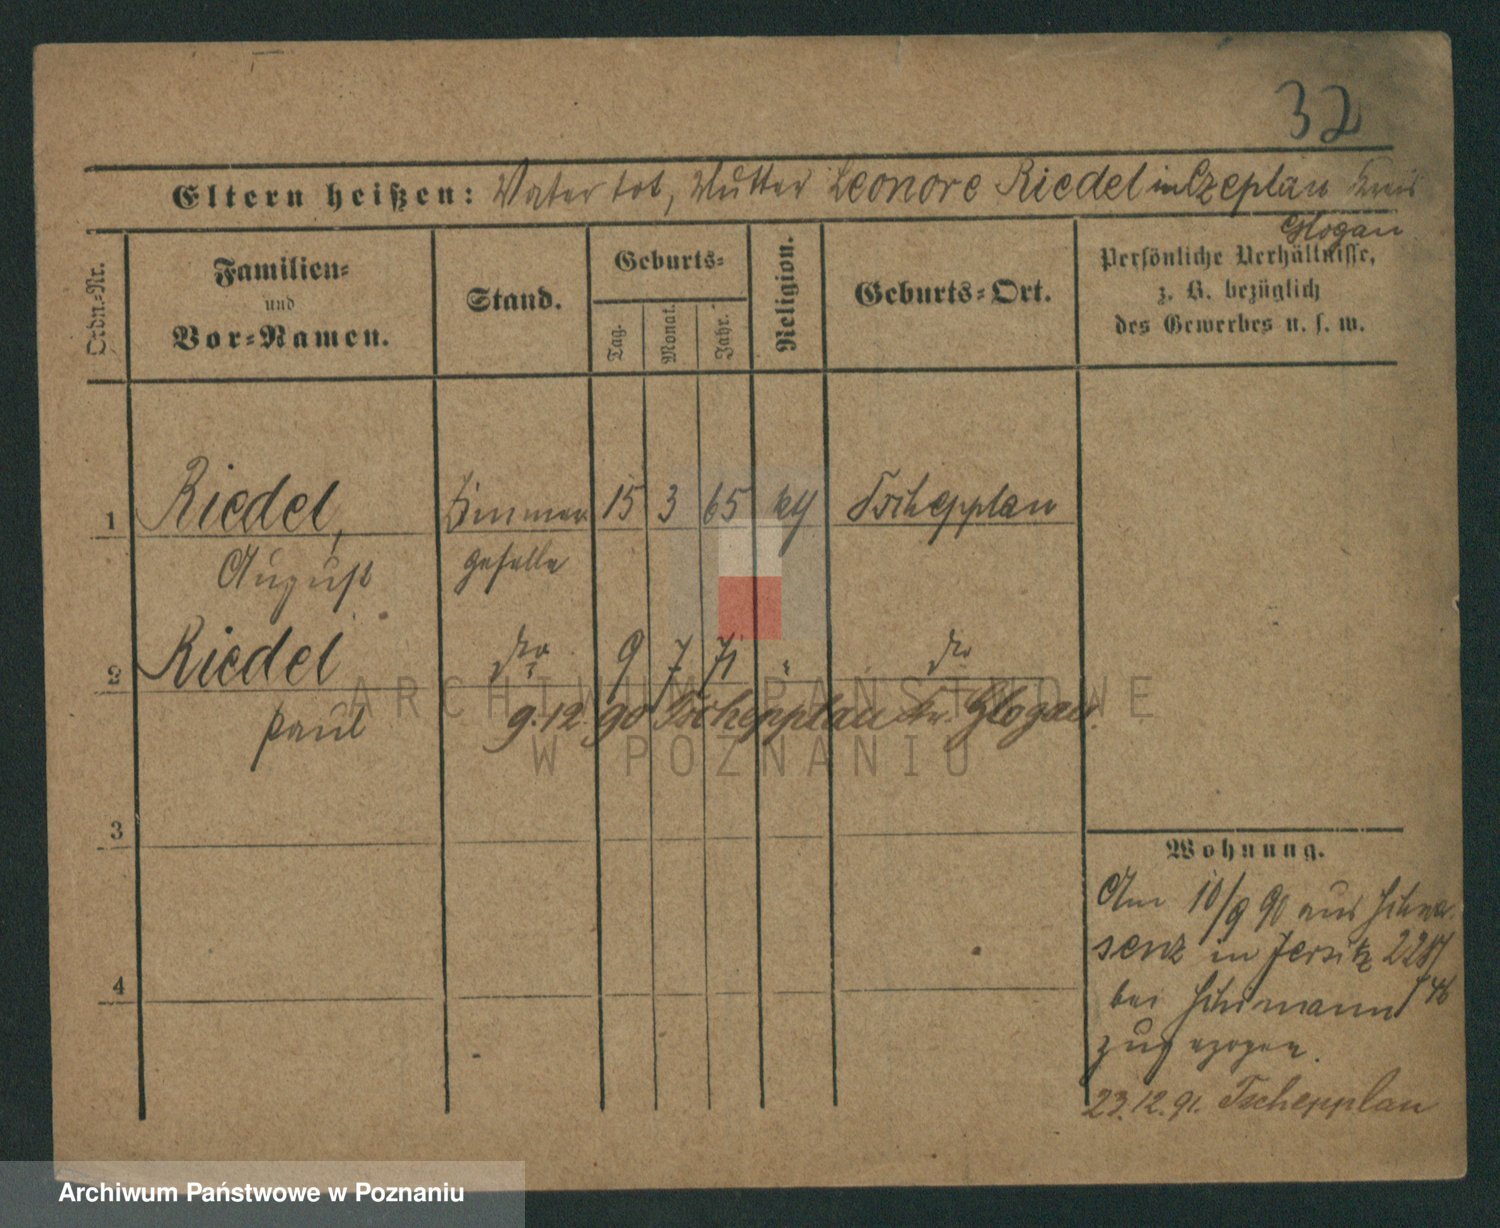 32
Eltern heißen: Vater tot, Mutter Leonore Riedel in Czeplau Kreis
Glogau
Ordn.-Nr.
Familien-
und
Vor-Namen.
Stand.
Geburts-
Tag.
Monat.
Jahr.
Religion.
Geburts-Ort.
Persönliche Verhältnisse,
z. B. bezüglich
des Gewerbes u. s. w.
1 Riedel, Zimmer 15 3 65 Tschepplau
August geselle
2 Riedel dto 9 7 71 " dto
Paul 9.12.90 Tschepplau Kr. Glogau.
3
4
Wohnung.
Am 10/9 90 aus
senz in Jersitz
bei
zugezogen.
23.12.91. Tschepplau
ARCHIWUM PAŃSTWOWE
W POZNANIU
Archiwum Państwowe w Poznaniu